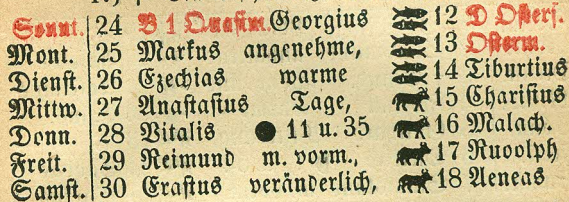 Sonnt. 24 B 1 Quasim. Georgius 12 D Osters.
Mont. 25 Markus angenehme, 13 Osterm.
Dienst. 26 Ezechias warme 14 Tiburtius
Mittw. 27 Anastasius Tage, 15 Charisius
Donn. 28 Vitalis ● 11 u. 35 16 Malach.
Freit. 29 Reimund m. vorm., 17 Ruoolph
Samst. 30 Erastus veränderlich, 18 Aeneas